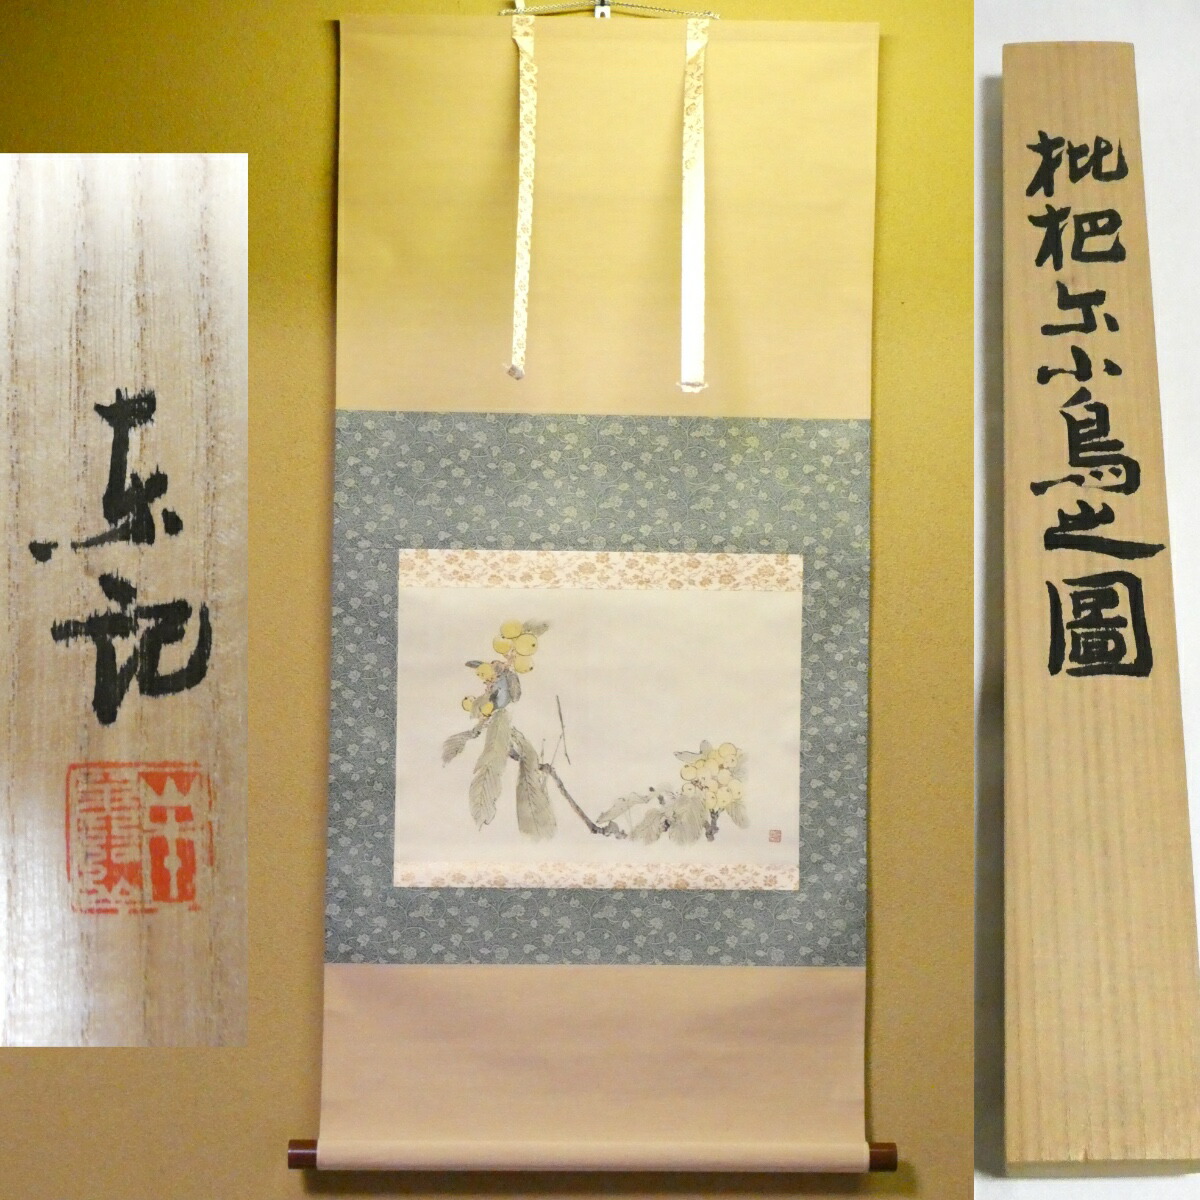 枇杷尓小鳥之圖
東記